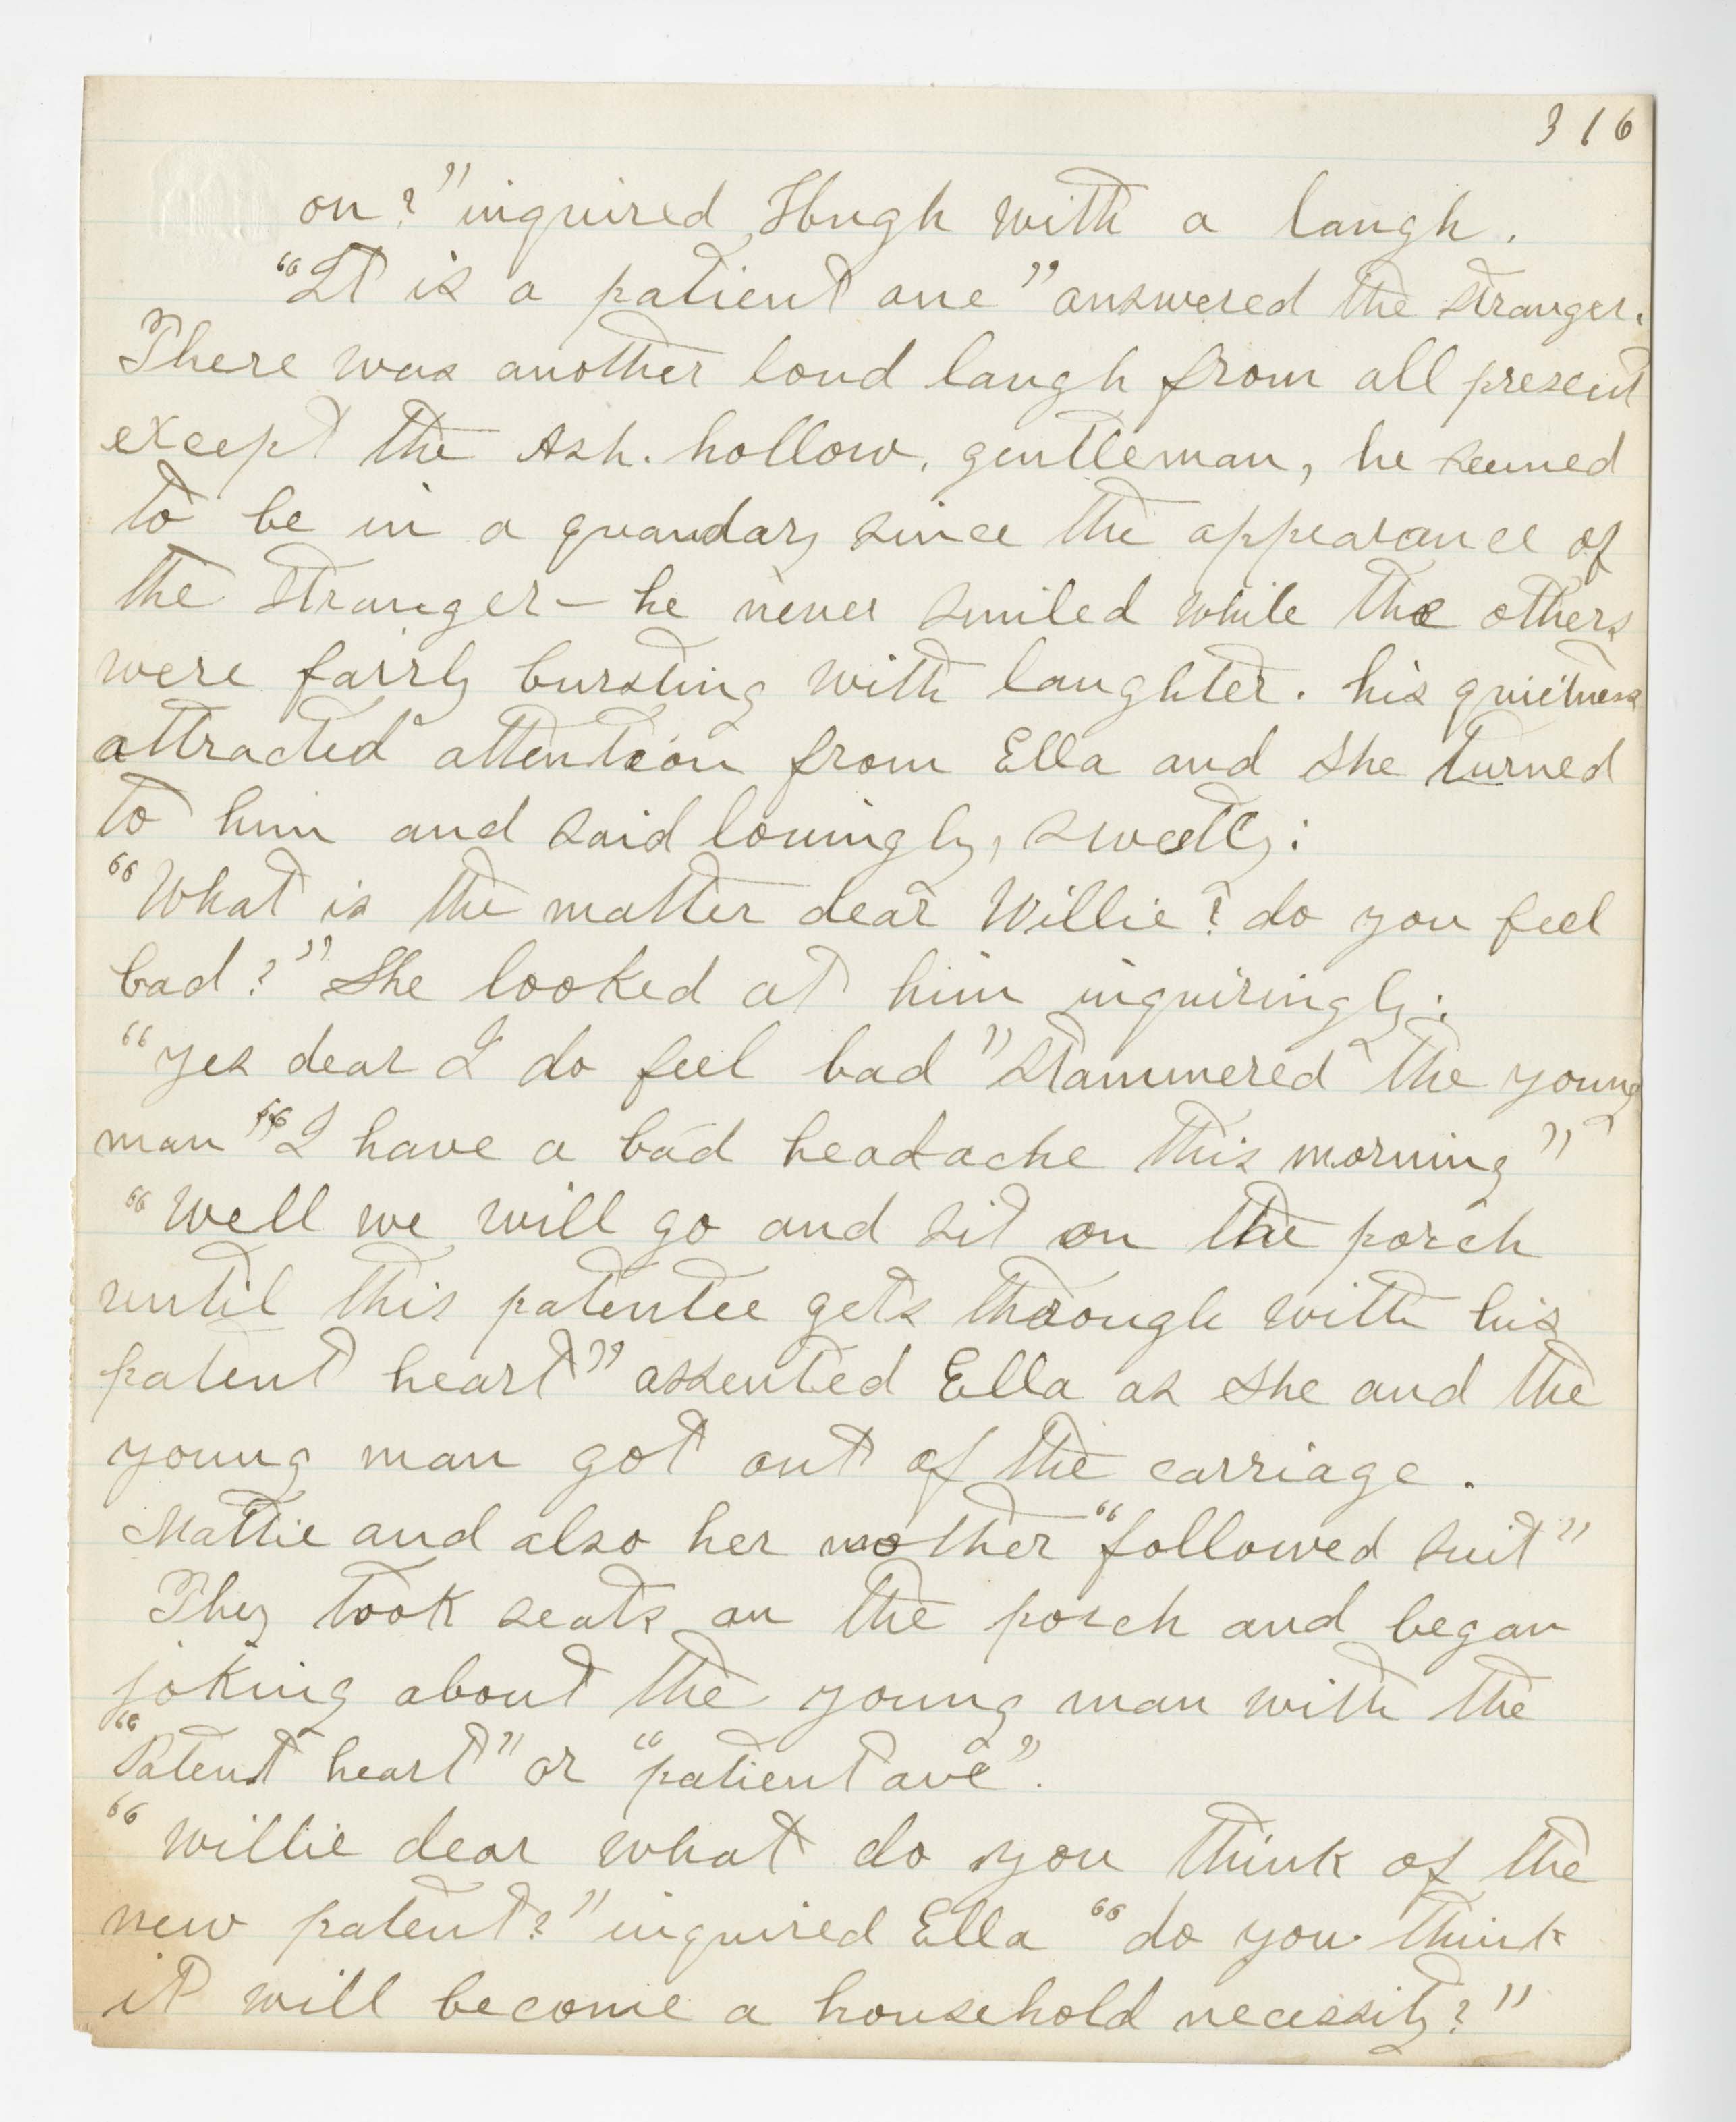 316
on?" inquired Hugh with a laugh.
"It is a patient one" answered the stranger.
There was another loud laugh from all present
except the Ash. hollow. gentleman, he seemed
to be in a quandary since the appearance of
the stranger – he never smiled while the others
were fairly bursting with laughter. his quietness
attracted attention from Ella and she turned
to him and said lovingly, sweetly:
"What is the matter dear Willie? do you feel
bad?" She looked at him inquiringly:
"Yes dear I do feel bad" stammered the young
man "I have a bad headache this morning"
"Well we will go and sit on the porch
until this patentee gets through with his
patent heart" assented Ella as she and the
young man got out of the carriage.
Mattie and also her mother "followed suit"
They took seats on the porch and began
joking about the young man with the
"Patent heart" or "patient one".
"Willie dear what do you think of the
new patent?" inquired Ella "do you think
it will become a household necessity?"